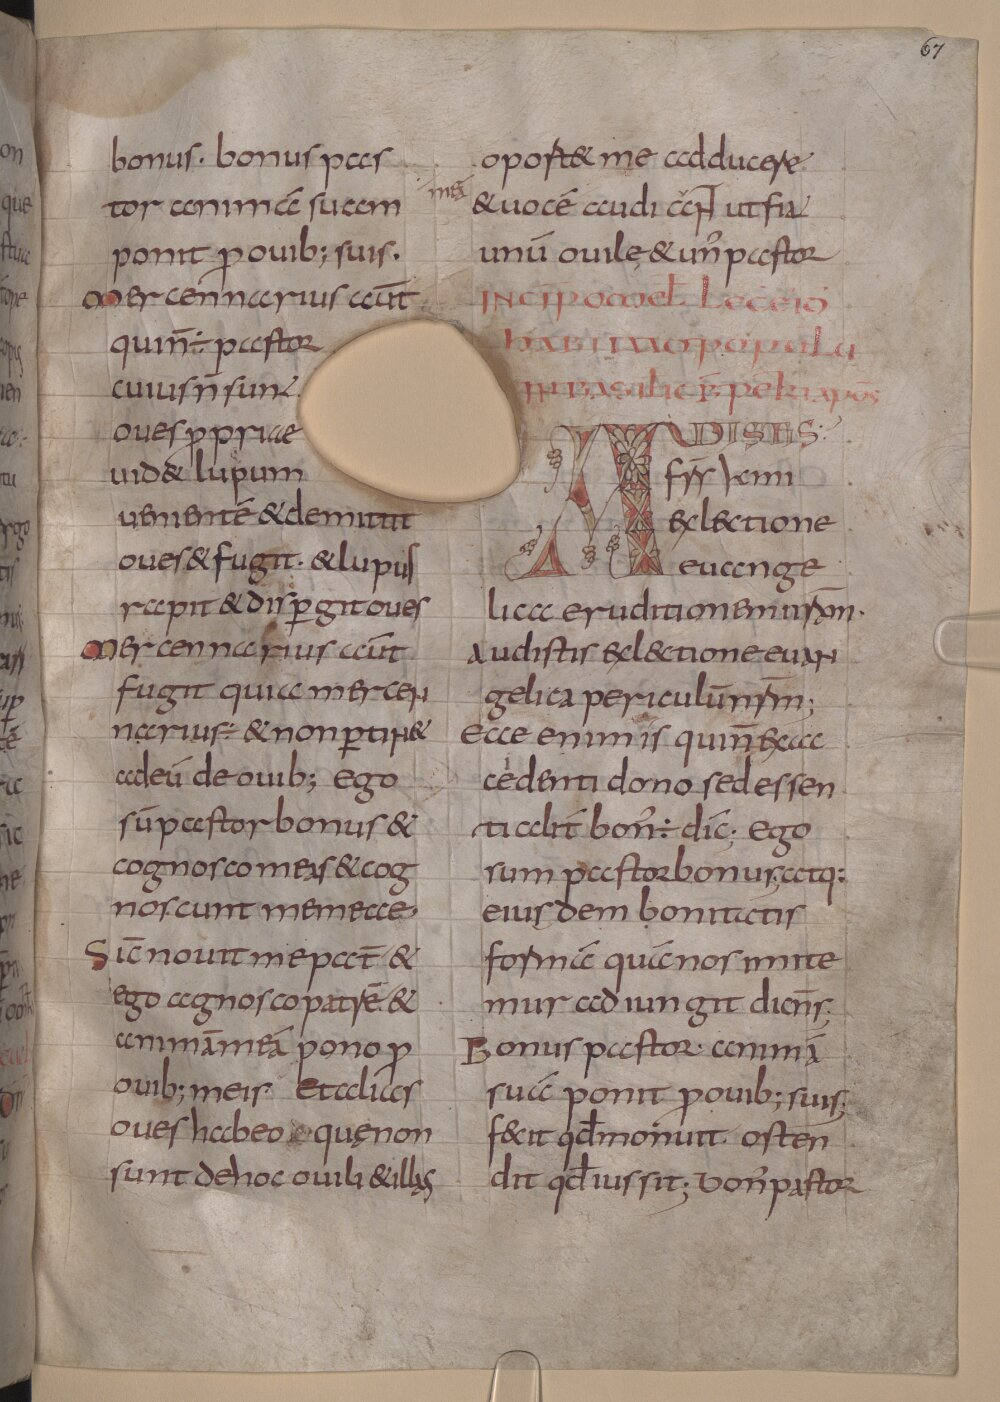 67
bonus. bonus pas
tor animā suam
ponit ꝓ ovib; suis.
Mercennarius aūt
qui n̄ ÷ pastor
cuius n̄ sunt
oves ꝓpriae
uid& lupum
venientē & demittit
oves & fugit. & lupus
rapit & disꝑgit oves
Mercennarius aūt
fugit quia mercen
narius ÷ & non ꝑtin&
ad eū de ovib; Ego
sū pastor bonus &
cognosco meas & cog
noscunt me meae
Sic novit me pat̄ &
ego agnosco patrē &
animā meā pono ꝓ
ovib; meis. Et alias
oves habeo quę non
sunt de hoc ovili & illas
oport& me adducere
& vocē meā audi aN̄t ut fiat
unū ovile & un' pastor
INCIP OMEL LECTIO
HABITA AD POPULU
IN BASILICA B PETRI APOS
AUDISTIS
frs kmi
ex lectione
evange
lica eruditionem vr̄am.
Audistis ex lectione evan
gelica periculū nr̄m;
Ecce enim is qui n̄ ex ac
cedenti dono sed essen
tialit̄ bon' ÷ dic̄. Ego
sum pastor bonus; atq:
eiusdem bonitatis
formā quā nos imite
mur adiungit dicn̄s;
Bonus pastor animā
suā ponit ꝓ ovib; suis;
fecit qd̄ monuit osten
dit qd̄ iussit; Bon' pastor